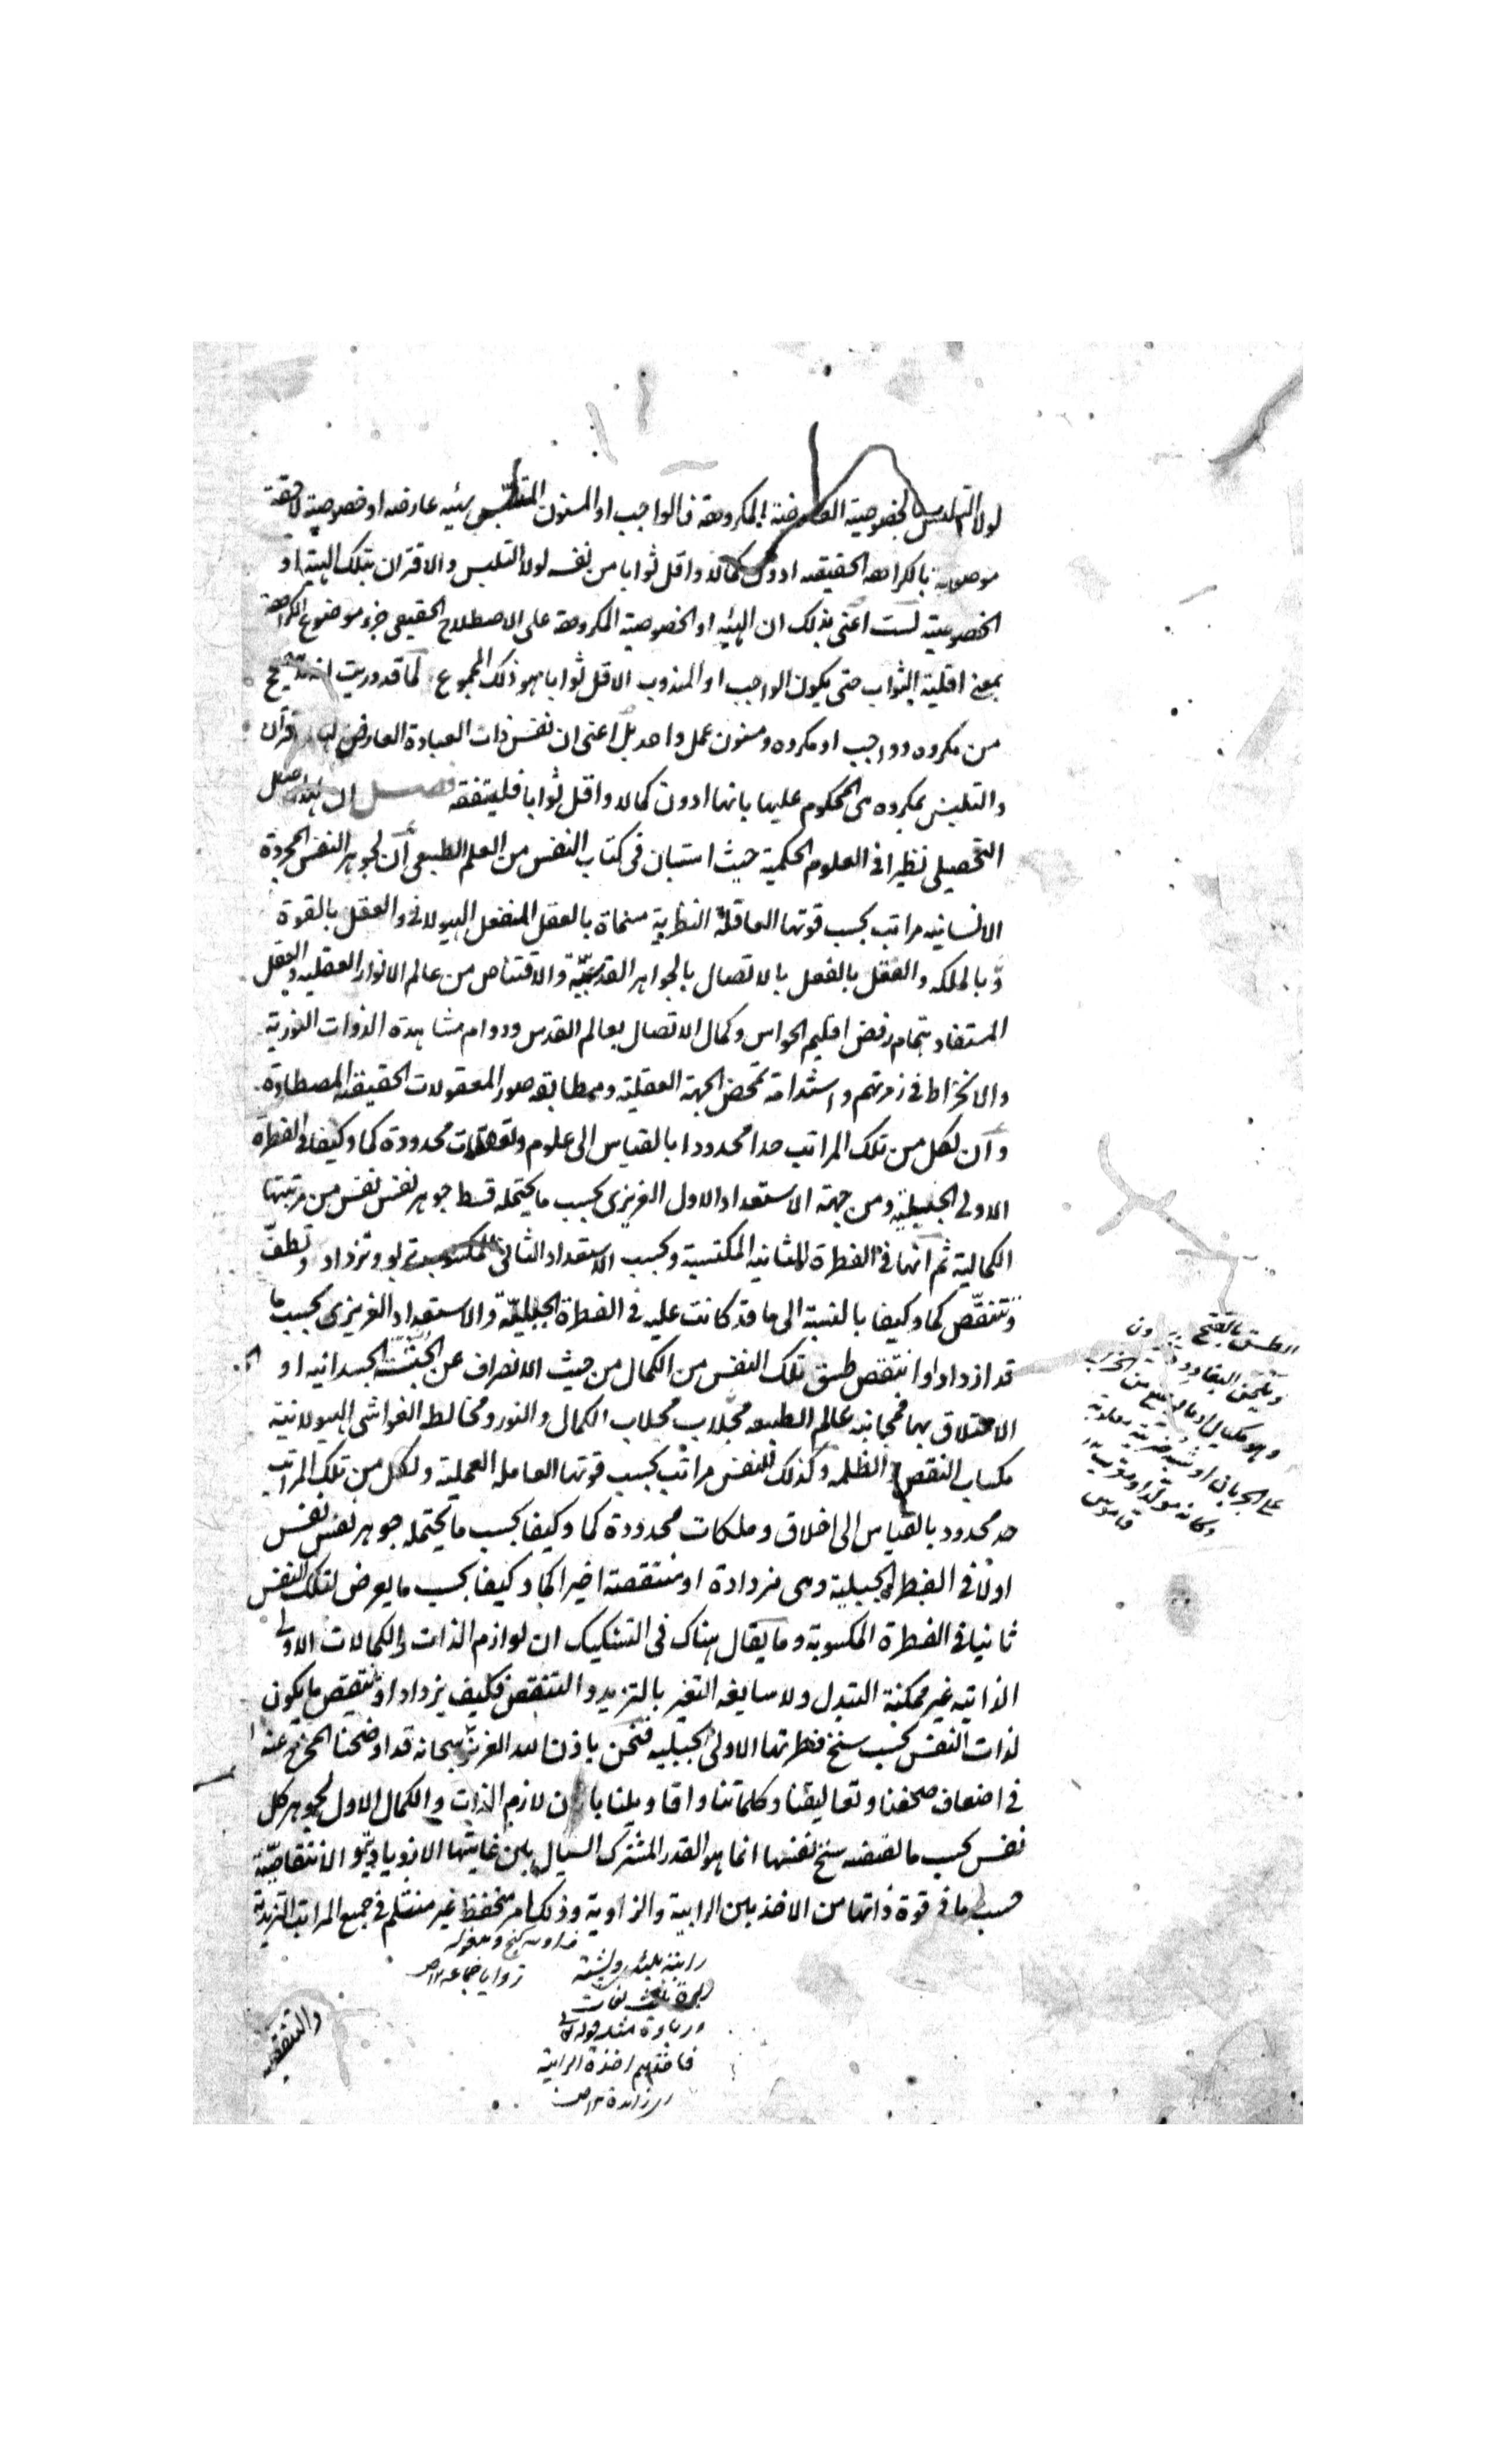 لولا التلبس بالخصوصية العارضة المكروهة فالواجب او المسنون المتلبس بهيئه عارضه او خصوصية لاحقة
موصوفة بالكراهه الحقيقيه ادون كمالا واقل ثوابا من نفسه لولا التلبس والاقتران بتلك الهيئة او
الخصوصية لست اعنى بذلك ان الهيئه او الخصوصية المكروهة على الاصطلاح الحقيقى جزء موضوع الكراهة
بمعنى اقلية الثواب حتى يكون الواجب او المندوب الاقل ثوابا هو ذلك المجموع كما قد دريت انه
من مكروه وواجب او مكروه ومسنون عمل واحد بل اعنى ان نفس ذات العبادة العارض لها اقتران
والتلبس بمكروه هى المحكوم عليها بانها ادون كمالا واقل ثوابا فليتفقه فصــل ان لهذا الاصل
التحصيلى نظيرا فى العلوم الحكمية حيث استبان فى كتاب النفس من العلم الطبيعى ان لجوهر النفس المجردة
الانسانيه مراتب بحسب قوتها العاقلة النظرية مسماة بالعقل المنفعل الهيولانى والعقل بالقوة
وبالملكه والعقل بالفعل بالاتصال بالجواهر القدسية والاقتناص من عالم الانوار العقليه والعقل
المستفاد بتمام رفض اقليم الحواس وكمال الاتصال بعالم القدس ودوام مشاهدة الذوات النورية
والانخراط فى زمرتهم واستدامة تمحض الجهة العقلية ومطابقه صور المعقولات الحقيقه المصطادة
وان لكل من تلك المراتب حدا محدودا بالقياس الى علوم وتعقلات محدودة كما وكيفا فى الفطرة
الاولى الجبلية ومن جهة الاستعداد الاول الغريزى بحسب ما يحتمله قسط جوهر نفس نفس من مرتبتها
الكمالية ثم انها فى الفطرة الثانيه المكتسبة وبحسب الاستعداد الثانى المكسوب تربو وتزداد وتطفّ
وتتنقّص كما وكيفا بالنسبة الى ما قد كانت عليه فى الفطرة الجبليّة والاستعداد الغريزى بحسب ما
قد ازداد او انتقص طسق تلك النفس من الكمال من حيث الانصراف عن الجنبة الجسدانيه او
الاعتلاق بها فمجانبه عالم الطبيعه مجلاب الكمال والنور ومخالطه الغواشى الهيولانية
مكساب النقص والظلمه وكذلك للنفس مراتب بحسب قوتها العامله العملية ولكل من تلك المراتب
حد محدود بالقياس الى اخلاق وملكات محددة كما وكيفا بحسب ما يحتمله جوهر نفس نفس
اولا فى الفطرة الجبلية وهى مزدادة او منتقصة اخيرا كما وكيفا بحسب ما يعرض لتلك النفس
ثانيا فى الفطرة المكسوبة وما يقال هناك فى التشكيك ان لوازم الذات والكمالات الاولى
الذاتيه غير ممكنة التبدل ولا سايغه التغير بالتزيد والتنقص فكيف يزداد او ينتقص ما يكون
لذات النفس بحسب سنخ فطرتها الاولى الجبليه فنحن باذن الله العزيز سبحانه قد اوضحنا المخرج عنه
فى اضعاف صحفنا وتعاليقنا وكلماتنا واقاويلنا بان لازم الذات والكمال الاول لجوهر كل
نفس بحسب ما تقتضيه سنخ نفسها انما هو القدر المشترك السيال بين غايتيها الازديادية والانتقاصيّة
حسب ما فى قوة ذاتها من الاخذ بين الرابية والزاوية وذلك امر منحفظ غير منثلم فى جميع المراتب التزيدية
والتنقصية
الطسق بالفتح
وهو مكيال او ما يوضع من الخراج
على الجربان او شبه ضريبة معلومة
وكانه مولّد او معرب
قاموس
زوايا جماعه ١٢ ص
رابية بلند وپشته
مثله قوله تعالى
فاخذهم اخذة رابية
اى زايدة ١٢ ص